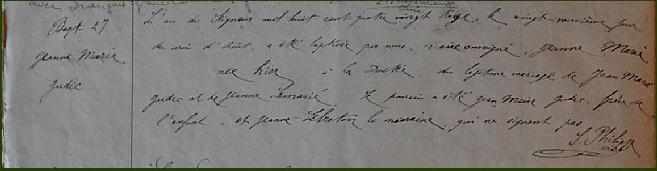 Bapt. 27
Jeanne Marie
Judic
L'an du Seigneur mil huit cent quatre vingt treize, le vingt neuvième jour
du mois d'Août, a été baptisée par nous, vicaire soussigné, Jeanne Marie
née hier à la du légitime mariage de Jean Marie
Judic et de Jeanne Le parrain a été Jean Marie Judic, frère de
l'enfant, et Jeanne Le Breton la marraine qui ne signent pas
J. Philippe
vic.